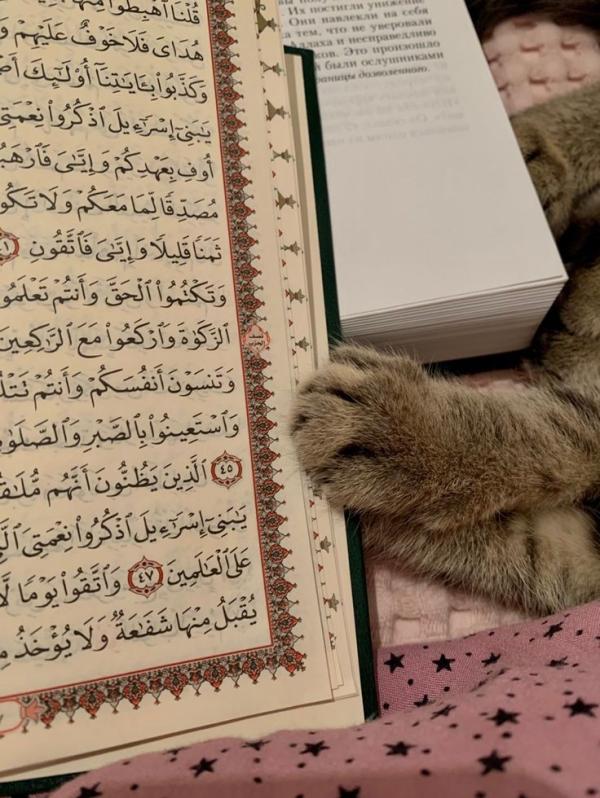 قُلْنَا ٱهْبِطُوا۟ مِنْهَا
هُدَاىَ فَلَا خَوْفٌ عَلَيْهِمْ وَ
وَكَذَّبُوا۟ بِـَٔايَـٰتِنَآ أُو۟لَـٰٓئِكَ
يَـٰبَنِىٓ إِسْرَٰٓءِيلَ ٱذْكُرُوا۟ نِعْمَتِىَ
أُوفِ بِعَهْدِكُمْ وَإِيَّـٰىَ فَٱرْهَبُ
مُصَدِّقًا لِّمَا مَعَكُمْ وَلَا تَكُو
ثَمَنًا قَلِيلًا وَإِيَّـٰىَ فَٱتَّقُونِ
وَتَكْتُمُوا۟ ٱلْحَقَّ وَأَنتُمْ تَعْلَمُو
ٱلزَّكَوٰةَ وَٱرْكَعُوا۟ مَعَ ٱلرَّٰكِعِينَ
نصف الحزب
وَتَنسَوْنَ أَنفُسَكُمْ وَأَنتُمْ تَتْلُ
وَٱسْتَعِينُوا۟ بِٱلصَّبْرِ وَٱلصَّلَوٰ
٤٥ ٱلَّذِينَ يَظُنُّونَ أَنَّهُم مُّلَـٰقُ
يَـٰبَنِىٓ إِسْرَٰٓءِيلَ ٱذْكُرُوا۟ نِعْمَتِىَ ٱلَّ
عَلَى ٱلْعَـٰلَمِينَ ٤٧ وَٱتَّقُوا۟ يَوْمًا لَّا
يُقْبَلُ مِنْهَا شَفَـٰعَةٌ وَلَا يُؤْخَذُ مِ
٧
Их постигли унижение
Они навлекли на себя
тем, что не уверовали
Аллаха и несправедливо
ков. Это произошло
были ослушниками
границы дозволенного.